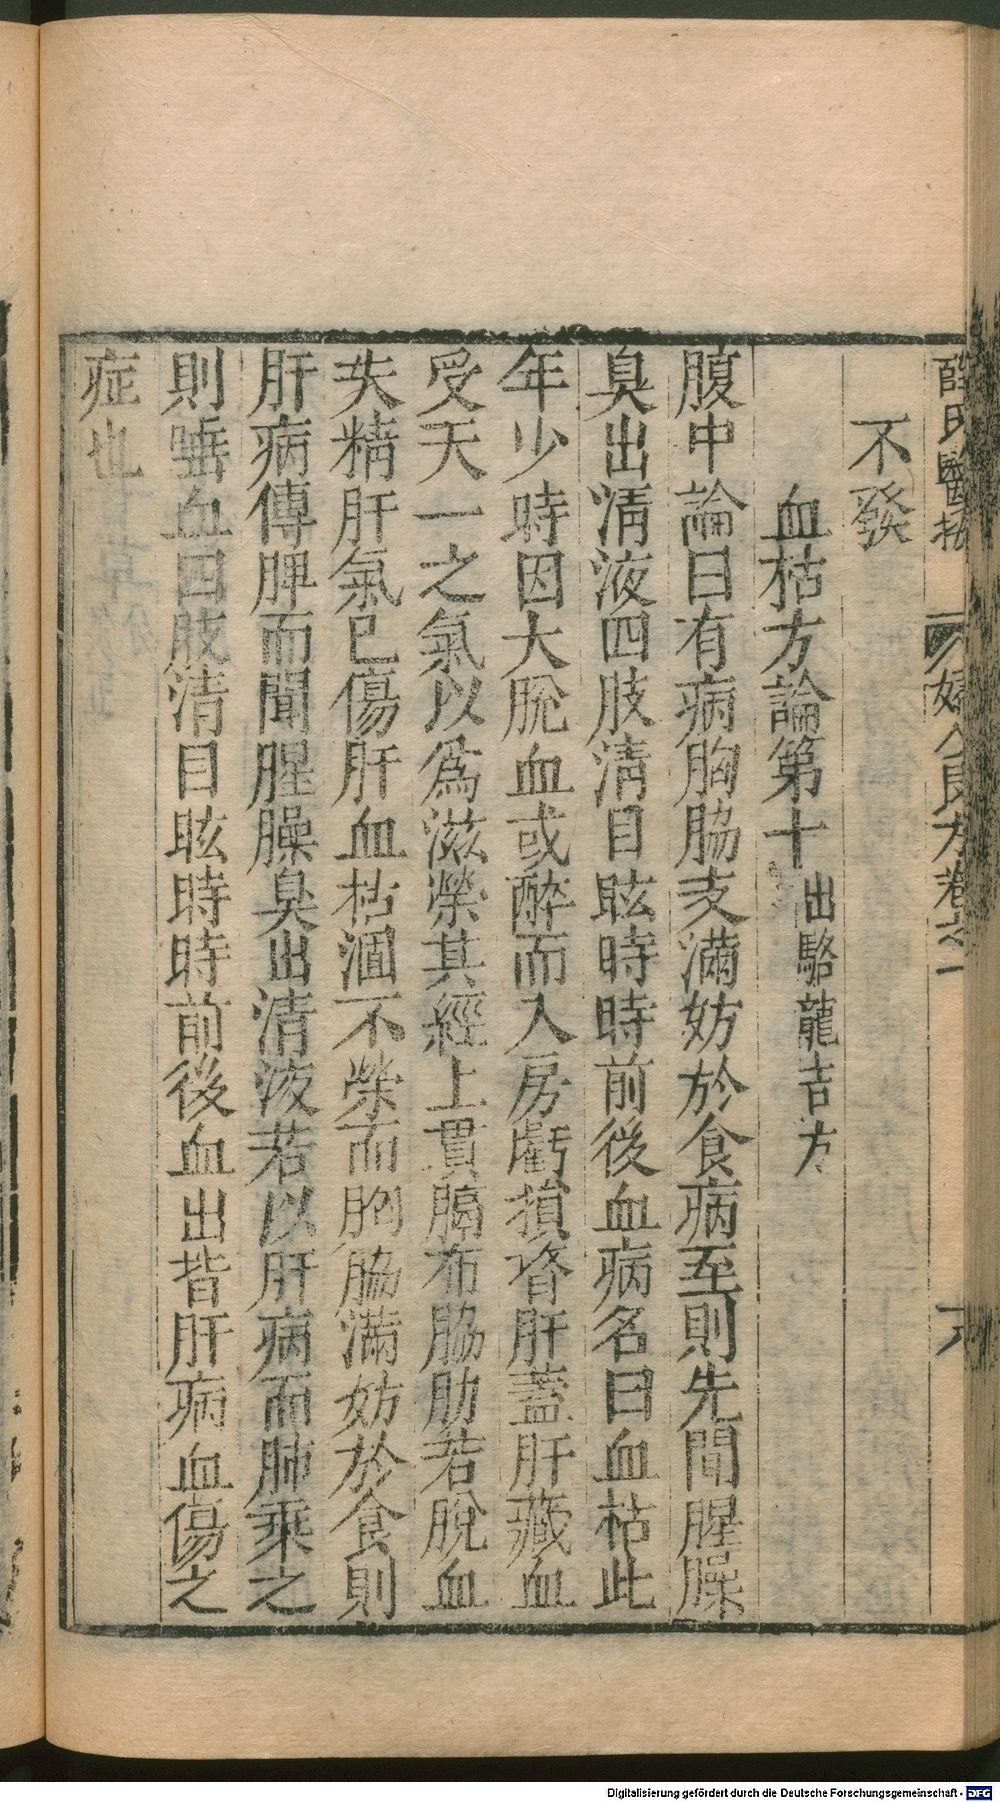 薛氏醫按 婦人良方卷之一 六
不發
血枯方論第十 出駱龍吉方
腹中論曰有病胸脇支滿妨於食病至則先聞腥臊
臭出清液四肢清目眩時時前後血病名曰血枯此
年少時因大脫血或醉而入房虧損腎肝蓋肝藏血
受天一之氣以爲滋榮其經上貫膈布脇肋若脫血
失精肝氣已傷肝血枯涸不榮而胸脇滿妨於食則
肝病傳脾而聞腥臊臭出清液若以肝病而肺乘之
則唾血四肢清目眩時時前後血出皆肝病血傷之
症也
Digitalisierung gefördert durch die Deutsche Forschungsgemeinschaft - DFG